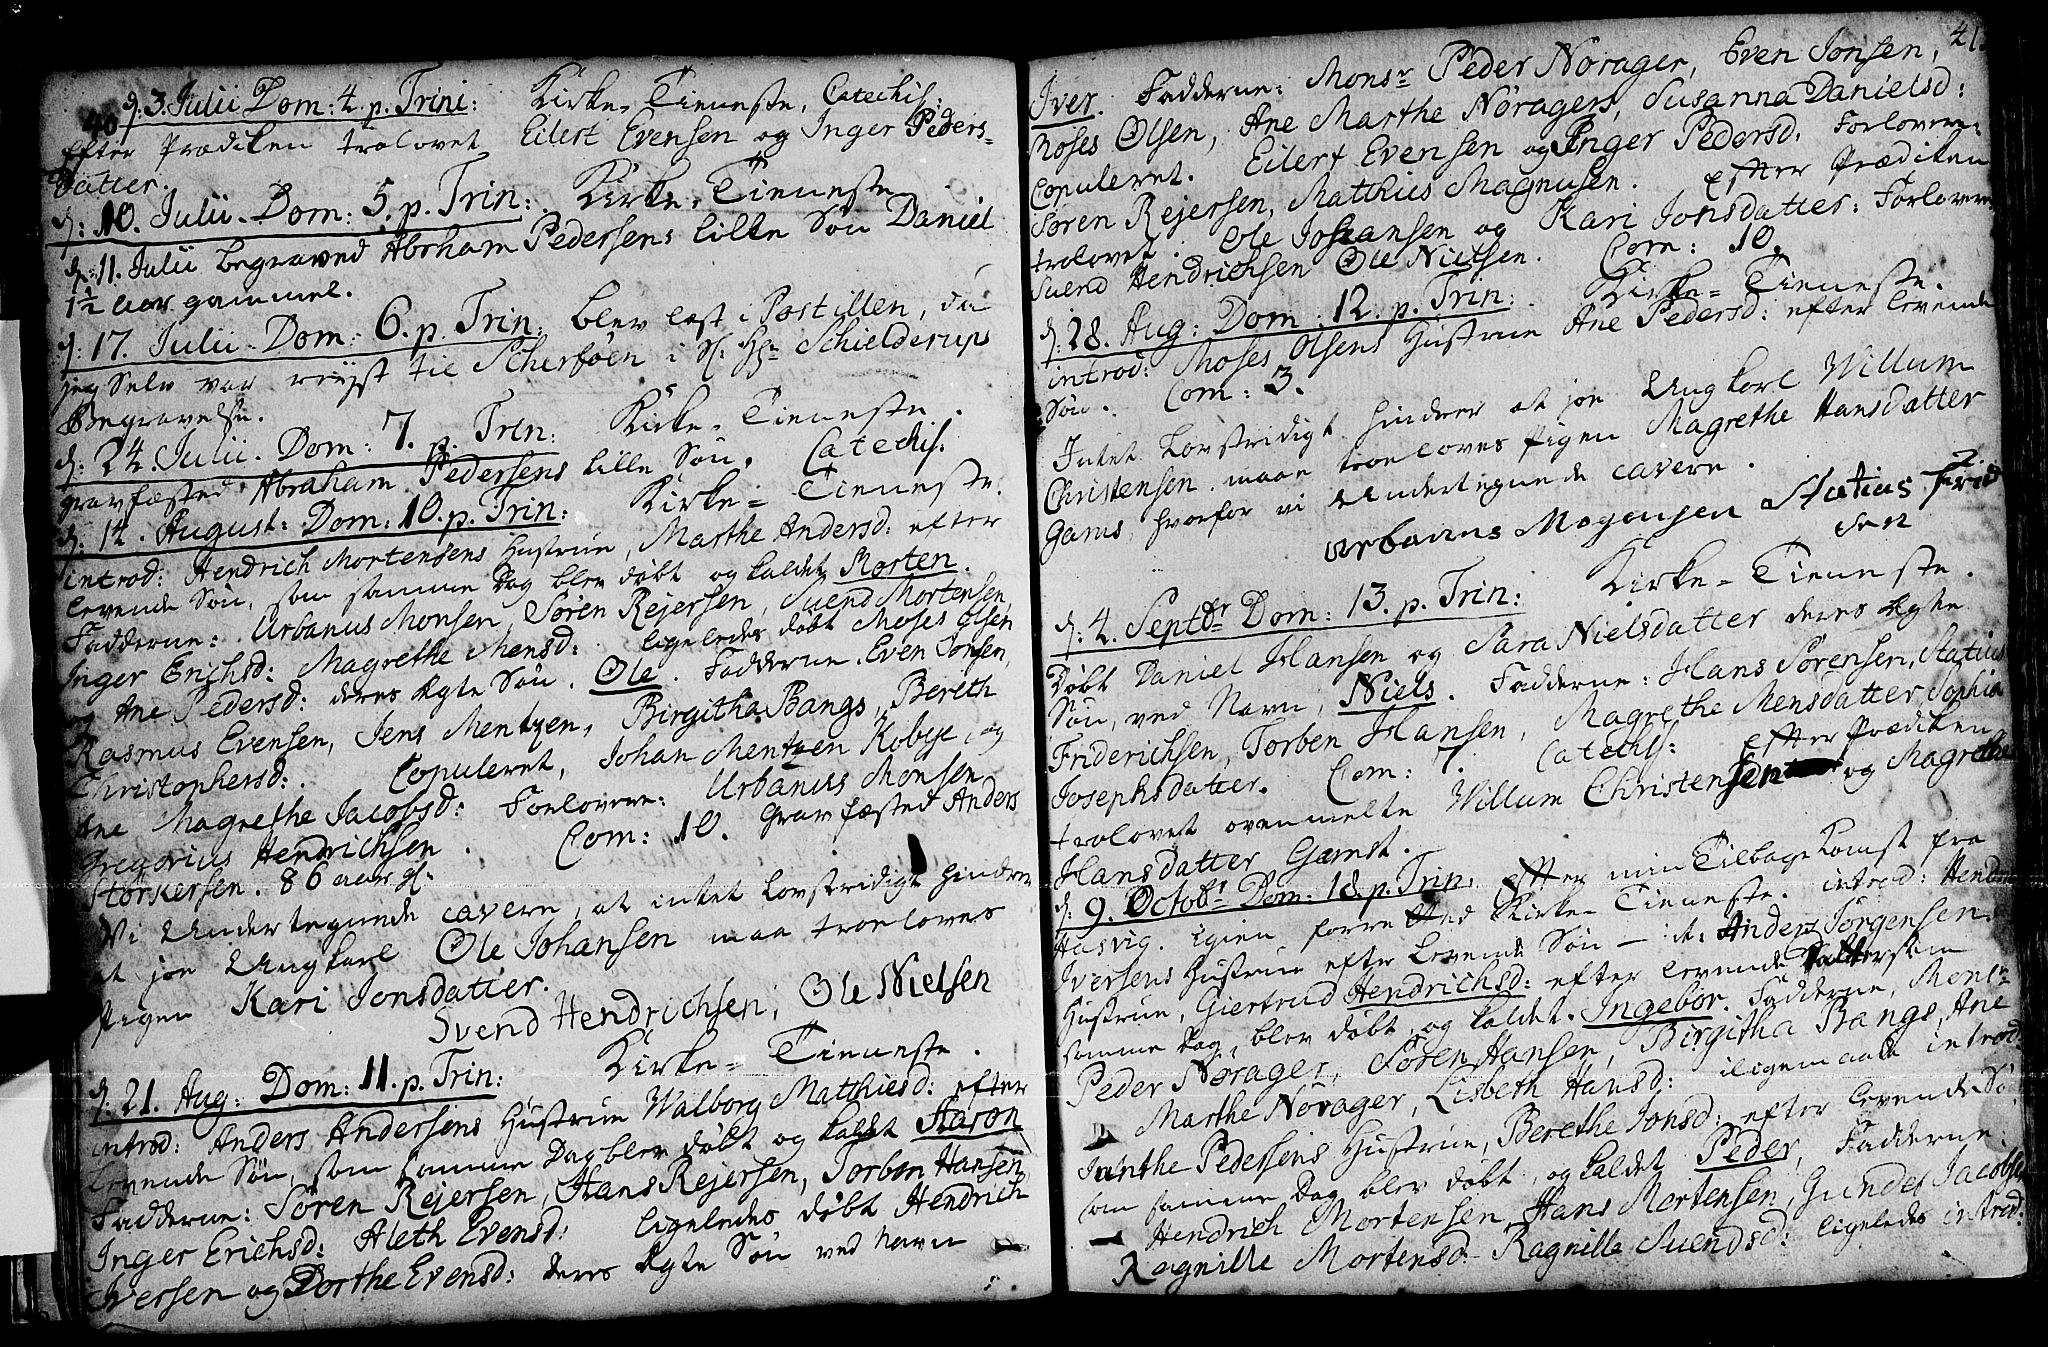 40
d: 3. Julii Dom: 4. p. Trini: Kirke-Tieneste, Catechis:
Efter Prædiken trolovet Eilert Evensen og Inger Peders-
datter.
d: 10. Julii. Dom: 5. p. Trin: Kirke-Tieneste
d: 11. Julii begraved Abrham Pedersens lille Søn Daniel
1½ aar gammel.
d: 17. Julii. Dom: 6. p. Trin: blev læst i Postillen, da
jeg Selv var reyst til i Sl: Hr: Schielderups
Begravelse.
d: 24. Julii. Dom: 7. p. Trin: Kirke-Tieneste.
gravfæsted Abraham Pedersens lille Søn. Catechis:
d: 14. August: Dom: 10. p. Trin: Kirke-Tieneste.
introd: Hendrich Mortensens Hustrue, Marthe Andersd: efter
levende Søn, som samme Dag blev døbt og kaldet Morten.
Fadderne: Urbanus Monsen, Søren Rejersen, Suend Mortensen,
Inger Erichsd: Magrethe Mensd: ligeledes døbt Moses Olsen
og Ane Pedersd: deres Ægte Søn. Ole. Fadderne. Even Jonsen,
Rasmus Evensen, Jens Mentzen, Birgitha Bangs, Bereth
Christophersd: Copuleret, Johan Mentzen Kobye, og
Ane Magrethe Jacobsd: Forlovere: Urbanus Monsen
Gregorius Hendrichsen. Com: 10. Gravfæsted Anders
Størkersen. 86 aar gl:
Vi Undertegnede cavere, at intet Lovstridigt hindrer
at jo Ungkarl Ole Johansen maa troeloves
Pigen Kari Jonsdatter.
Svend Hendrichsen, Ole Nielsen
d: 21. Aug: Dom: 11. p. Trin: Kirke-Tieneste.
introd: Anders Andersens Hustrue Walborg Matthiesd: efter
levende Søn, som samme Dag blev døbt og kaldt Aaron
Fadderne: Søren Rejersen, Hans Rejersen, Torben Hansen,
Inger Erichsd: Aleth Evensd: ligeledes døbt Hendrich
Iversen og Dorthe Evensd: deres Ægte Søn ved navn
41.
Iver. Fadderne: Monsr Peder Nørager, Even Jonsen,
Moses Olsen, Ane Marthe Nøragers, Susanna Danielsd:
Copuleret. Eilert Evensen og Inger Pedersd: Forlovere:
Søren Rejersen, Matthias Magnusen. Efter Prædiken
trolovet. Ole Johansen og Kari Jonsdatter: Forlovere
Suend Hendrichsen Ole Nielsen. Com: 10.
d: 28. Aug: Dom: 12. p. Trin: Kirke-Tieneste.
introd: Moses Olsens Hustrue Ane Pedersd: efter levende
Søn. Com: 3.
Intet Lovstridigt hindrer at jo Ungkarl Willum
Christensen maae troeloves Pigen Magrethe Hansdatter
Gams, hvorfor vi Undertegnede cavere.
Urbanus Mogensen Statius Frid
sen
d: 4. Septbr Dom: 13. p. Trin: Kirke-Tieneste.
Døbt Daniel Hansen og Sara Nielsdatter deres Ægte
Søn, ved Navn, Niels. Fadderne: Hans Sørensen, Statius
Friderichsen, Torben Hansen, Magrethe Mensdatter, Sophia
Josephsdatter. Com: 7. Catechis: Efter Prædiken
trolovet ovenmelte Willum Christensen og Magrethe
Hansdatter Gamst.
d: 9. Octobr Dom: 18. p. Trin: Efter min Tilbagekomst fra
Hasvig. igien forretted Kirke-Tieneste. introd: Hendrich
Iversens Hustrue efter Levende Søn — it: Anders Jørgensens
Hustrue, Giertrud Hendrichsd: efter levende Datter som
samme Dag, blev døbt, og kaldet. Ingebor. Fadderne, Monsr
Peder Nørager, Søren Hansen, Birgitha Bangs, Ane
Marthe Nørager, Lisbeth Hansd: iligemaade introd:
Pedersens Hustrue, Berethe Jonsd: efter levende Søn,
som samme Dag blev døbt, og kaldet Peder, Fadderne.
Hendrich Mortensen, Hans Mortensen, Gunder Jacobsen
Ragnille Mortensd. Ragnille Suendsd: ligeledes introd: